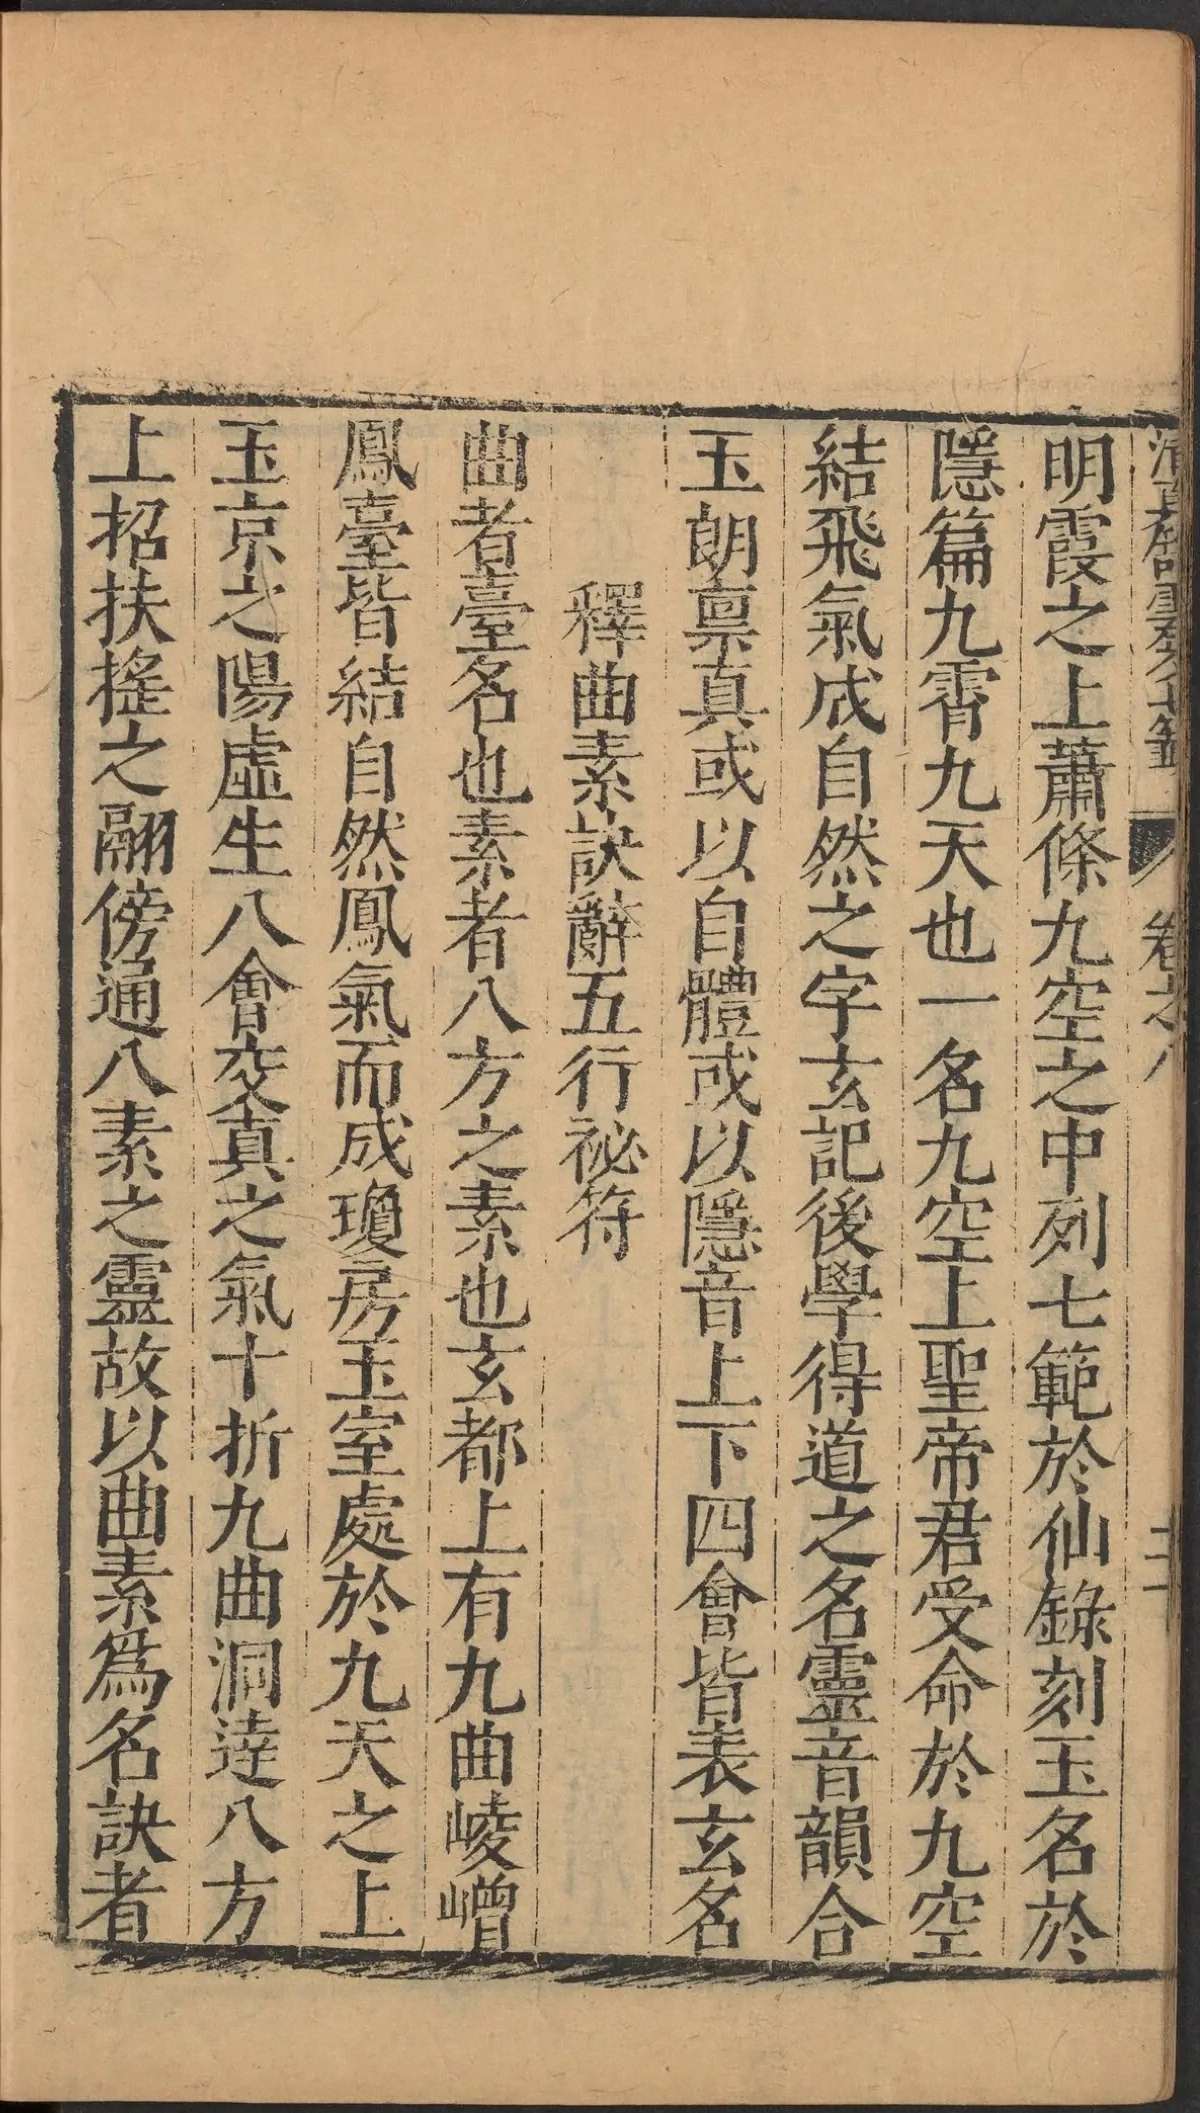 清真館雲笈七籤 卷之八 二十一
明霞之上蕭條九空之中列七範於仙錄刻玉名於
隱篇九霄九天也一名九空上聖帝君受命於九空
結飛氣成自然之字玄記後學得道之名靈音韻合
玉朗禀真或以自體或以隱音上下四會皆表玄名
釋曲素訣辭五行祕符
曲者臺名也素者八方之素也玄都上有九曲崚嶒
鳳臺皆結自然鳳氣而成瓊房玉室處於九天之上
玉京之陽虛生八會交真之氣十折九曲洞達八方
上招扶搖之翮傍通八素之靈故以曲素爲名訣者